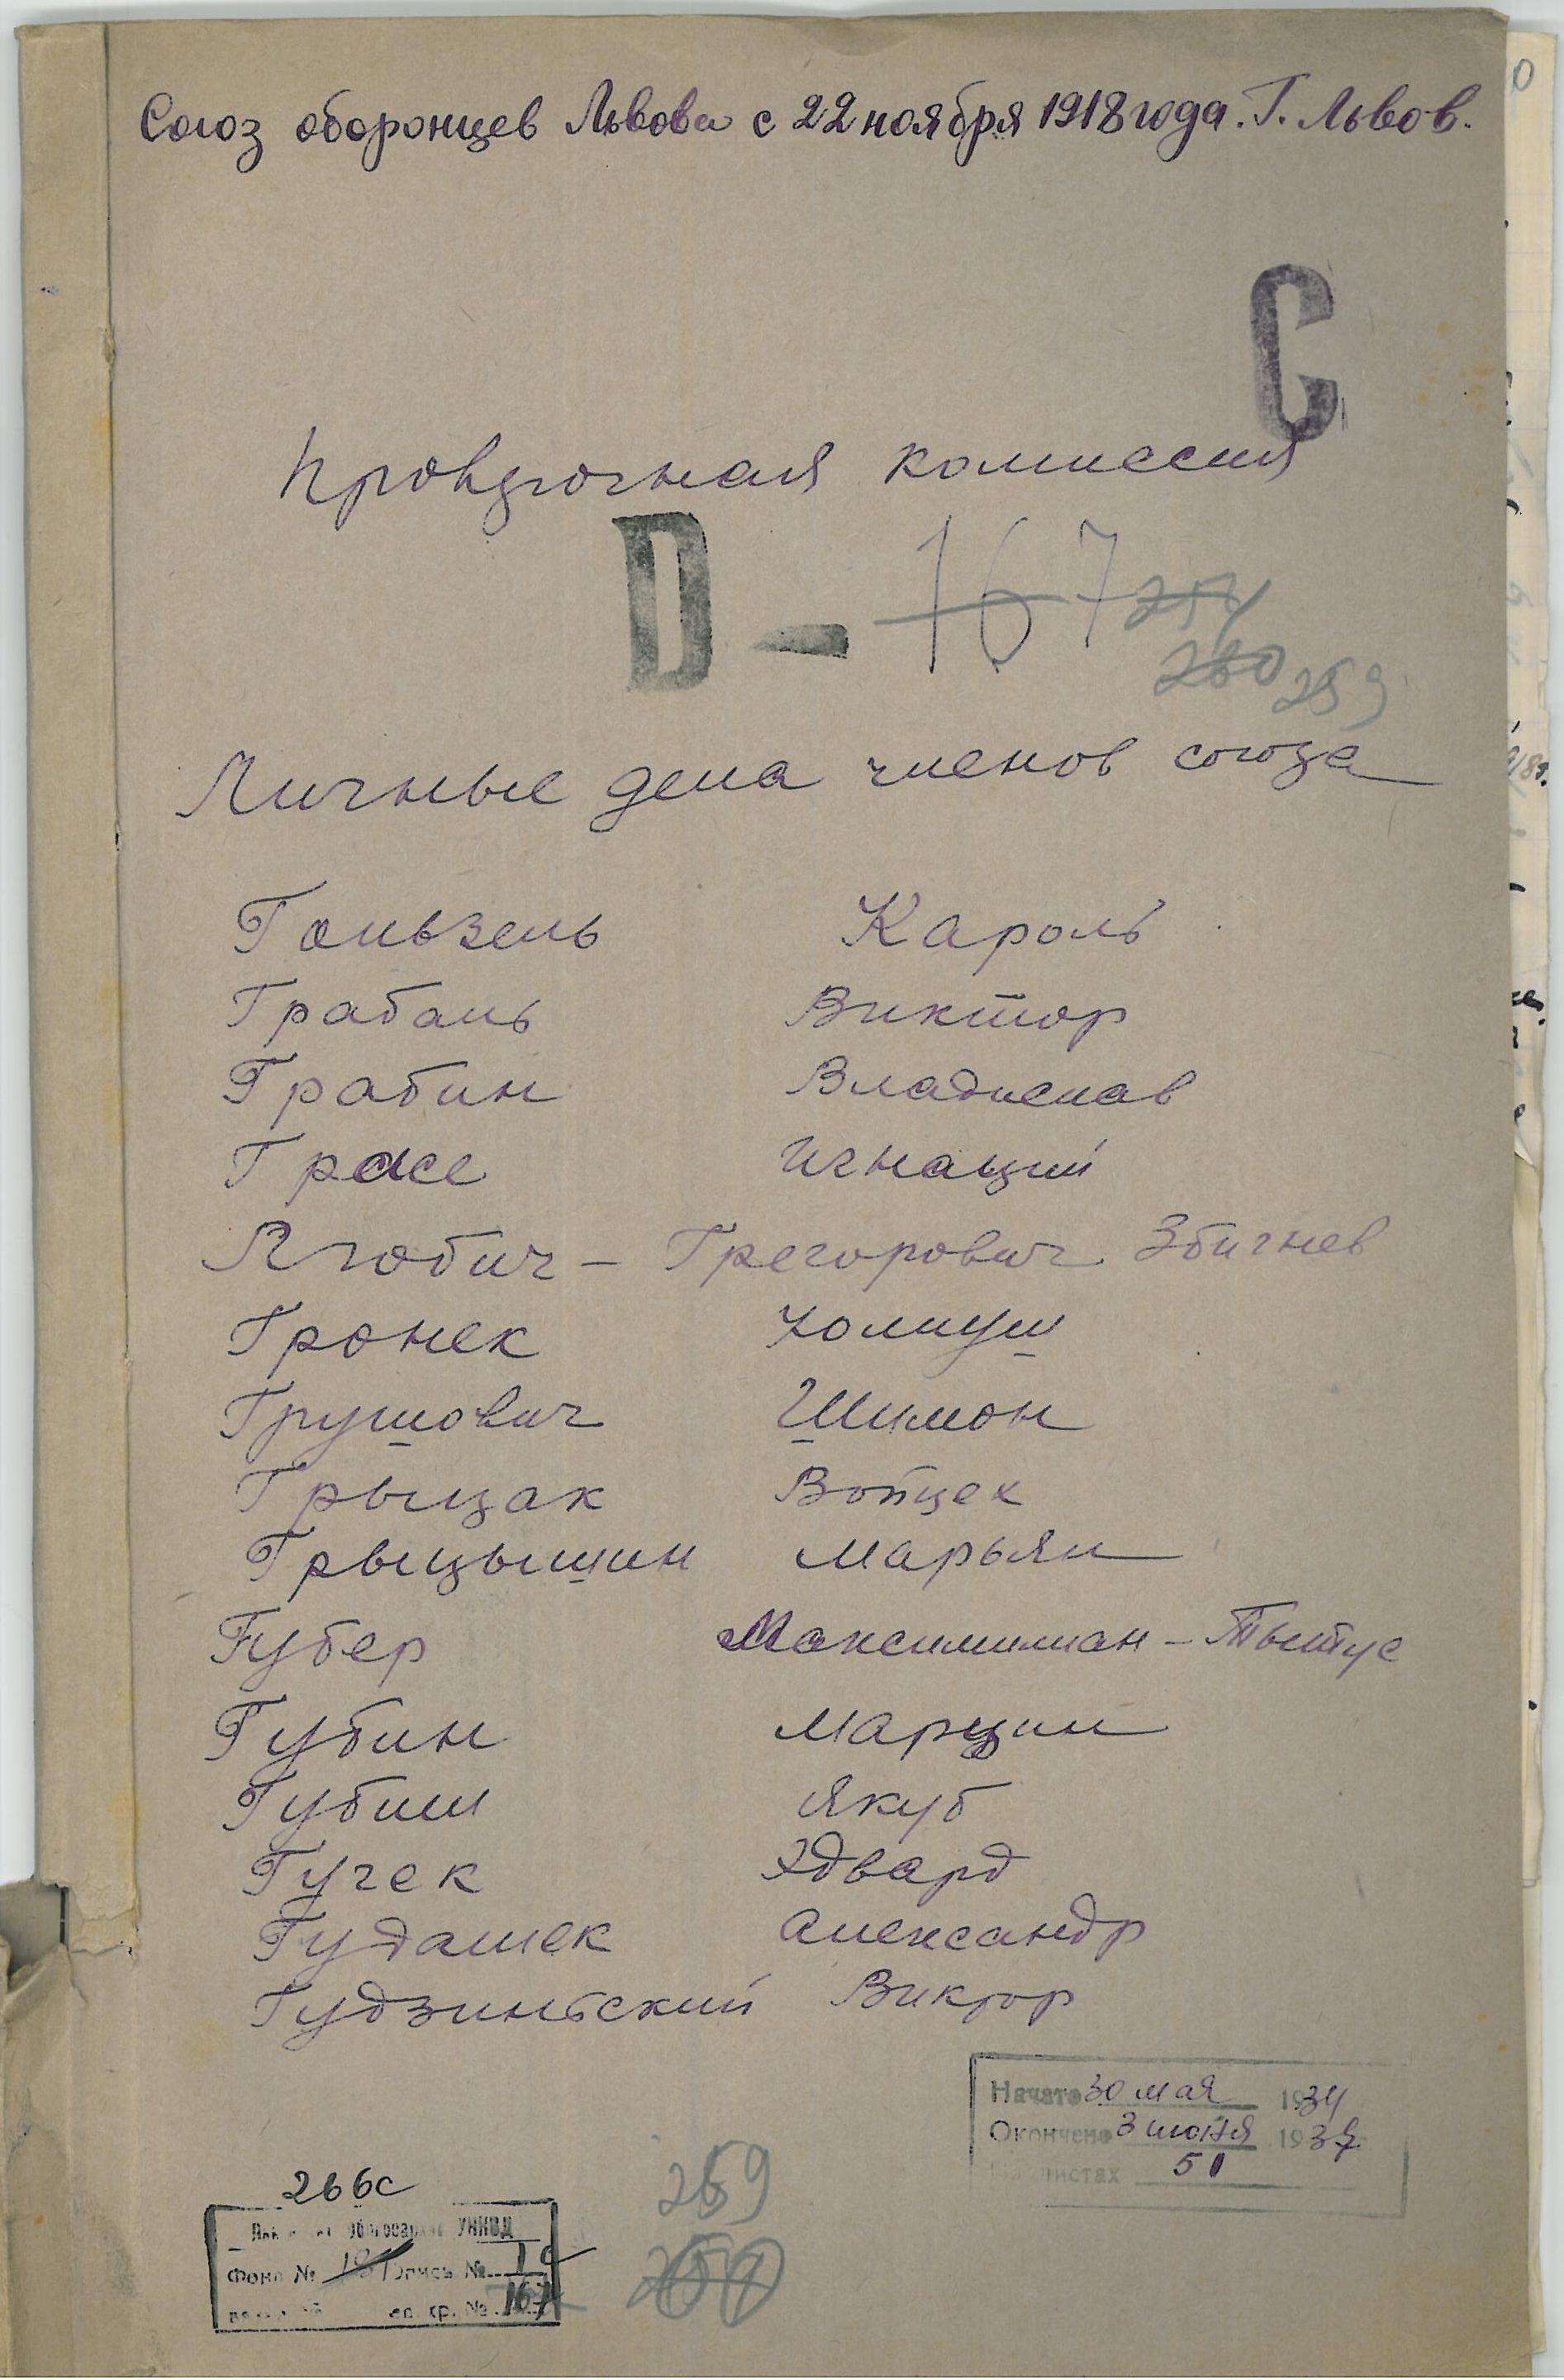 Союз оборонцев Львова с 22 ноября 1918 года. Г. Львов.
С
комиссия
D - 167 254
260 259
Личные дела членов союза
Гользель Кароль
Грабаль Виктор
Грабин Владислав
Грасс Игнаций
Любич - Грегорович Збигнев
Гронек Юлиуш
Грушович Шимон
Грыцак Войцех
Грыцышин Марьян
Губер Максимилиан - Тытус
Губин Марцин
Губиш Якуб
Гучек Эдвард
Гудашек Александр
Гудзиньский Виктор
Начато 30 мая 1934
Окончено 3 июня 1937
листах 51
266с
259
УНКВД
Фонд № Опись № 1с
ед. хр. № 167